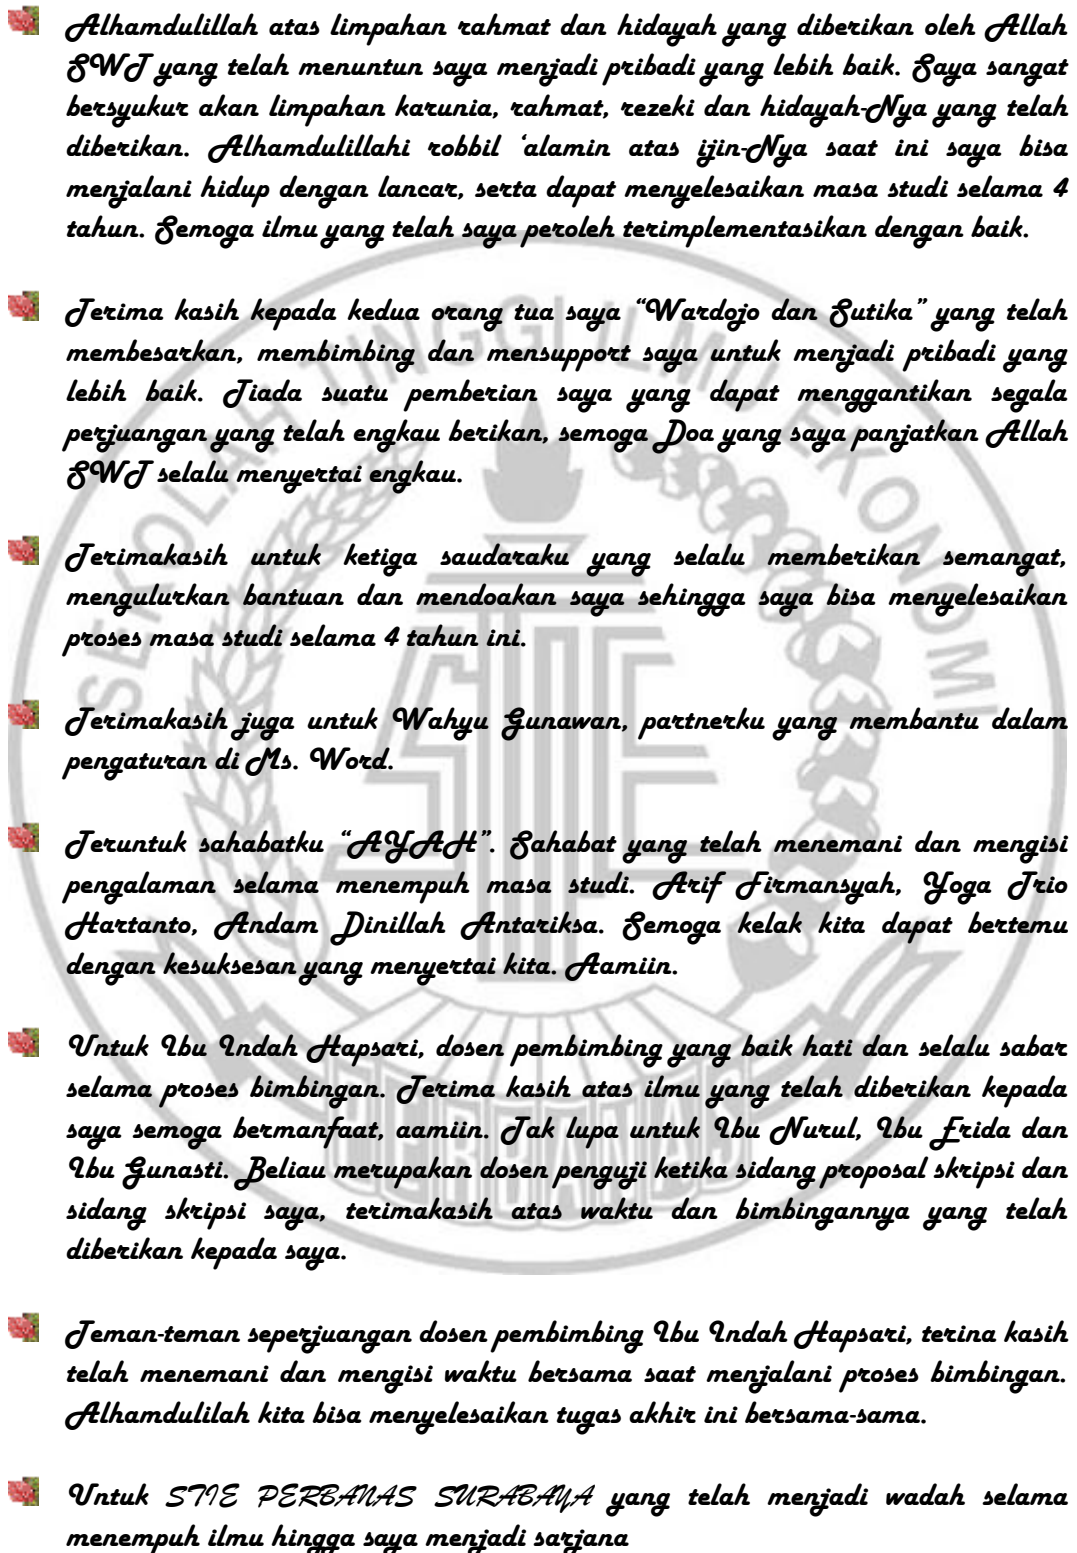 Alhamdulillah atas limpahan rahmat dan hidayah yang diberikan oleh Allah
SWT yang telah menuntun saya menjadi pribadi yang lebih baik. Saya sangat
bersyukur akan limpahan karunia, rahmat, rezeki dan hidayah-Nya yang telah
diberikan. Alhamdulillahi robbil ‘alamin atas ijin-Nya saat ini saya bisa
menjalani hidup dengan lancar, serta dapat menyelesaikan masa studi selama 4
tahun. Semoga ilmu yang telah saya peroleh terimplementasikan dengan baik.
Terima kasih kepada kedua orang tua saya “Wardojo dan Sutika” yang telah
membesarkan, membimbing dan mensupport saya untuk menjadi pribadi yang
lebih baik. Tiada suatu pemberian saya yang dapat menggantikan segala
perjuangan yang telah engkau berikan, semoga Doa yang saya panjatkan Allah
SWT selalu menyertai engkau.
Terimakasih untuk ketiga saudaraku yang selalu memberikan semangat,
mengulurkan bantuan dan mendoakan saya sehingga saya bisa menyelesaikan
proses masa studi selama 4 tahun ini.
Terimakasih juga untuk Wahyu Gunawan, partnerku yang membantu dalam
pengaturan di Ms. Word.
Teruntuk sahabatku “AYAH”. Sahabat yang telah menemani dan mengisi
pengalaman selama menempuh masa studi. Arif Firmansyah, Yoga Trio
Hartanto, Andam Dinillah Antariksa. Semoga kelak kita dapat bertemu
dengan kesuksesan yang menyertai kita. Aamiin.
Untuk Ibu Indah Hapsari, dosen pembimbing yang baik hati dan selalu sabar
selama proses bimbingan. Terima kasih atas ilmu yang telah diberikan kepada
saya semoga bermanfaat, aamiin. Tak lupa untuk Ibu Nurul, Ibu Erida dan
Ibu Gunasti. Beliau merupakan dosen penguji ketika sidang proposal skripsi dan
sidang skripsi saya, terimakasih atas waktu dan bimbingannya yang telah
diberikan kepada saya.
Teman-teman seperjuangan dosen pembimbing Ibu Indah Hapsari, terina kasih
telah menemani dan mengisi waktu bersama saat menjalani proses bimbingan.
Alhamdulilah kita bisa menyelesaikan tugas akhir ini bersama-sama.
Untuk STIE PERBANAS SURABAYA yang telah menjadi wadah selama
menempuh ilmu hingga saya menjadi sarjana
SEKOLAH TINGGI ILMU EKONOMI
PERBANAS